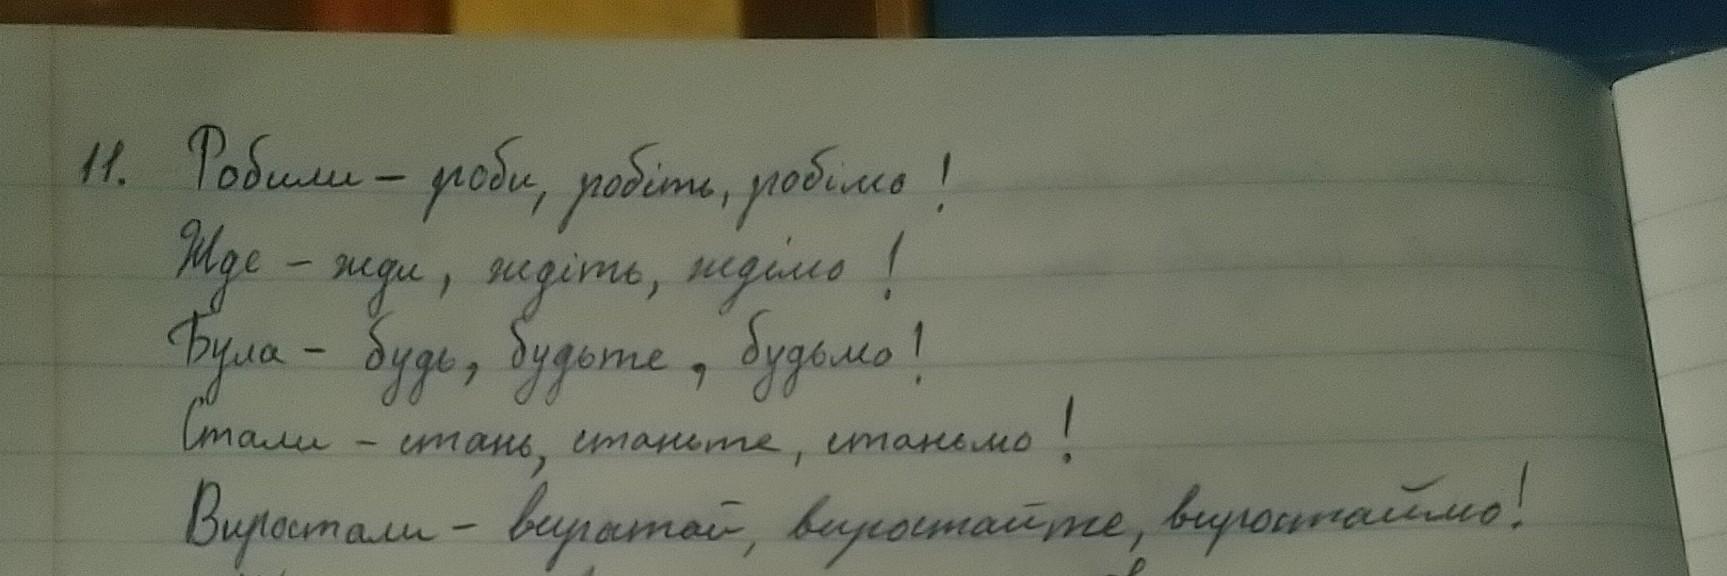 11. Робили – роби, робіть, робімо!
Жде – жди, ждіть, ждімо!
Була – будь, будьте, будьмо!
Стали – стань, станьте, станьмо!
Виростали – виростай, виростайте, виростаймо!